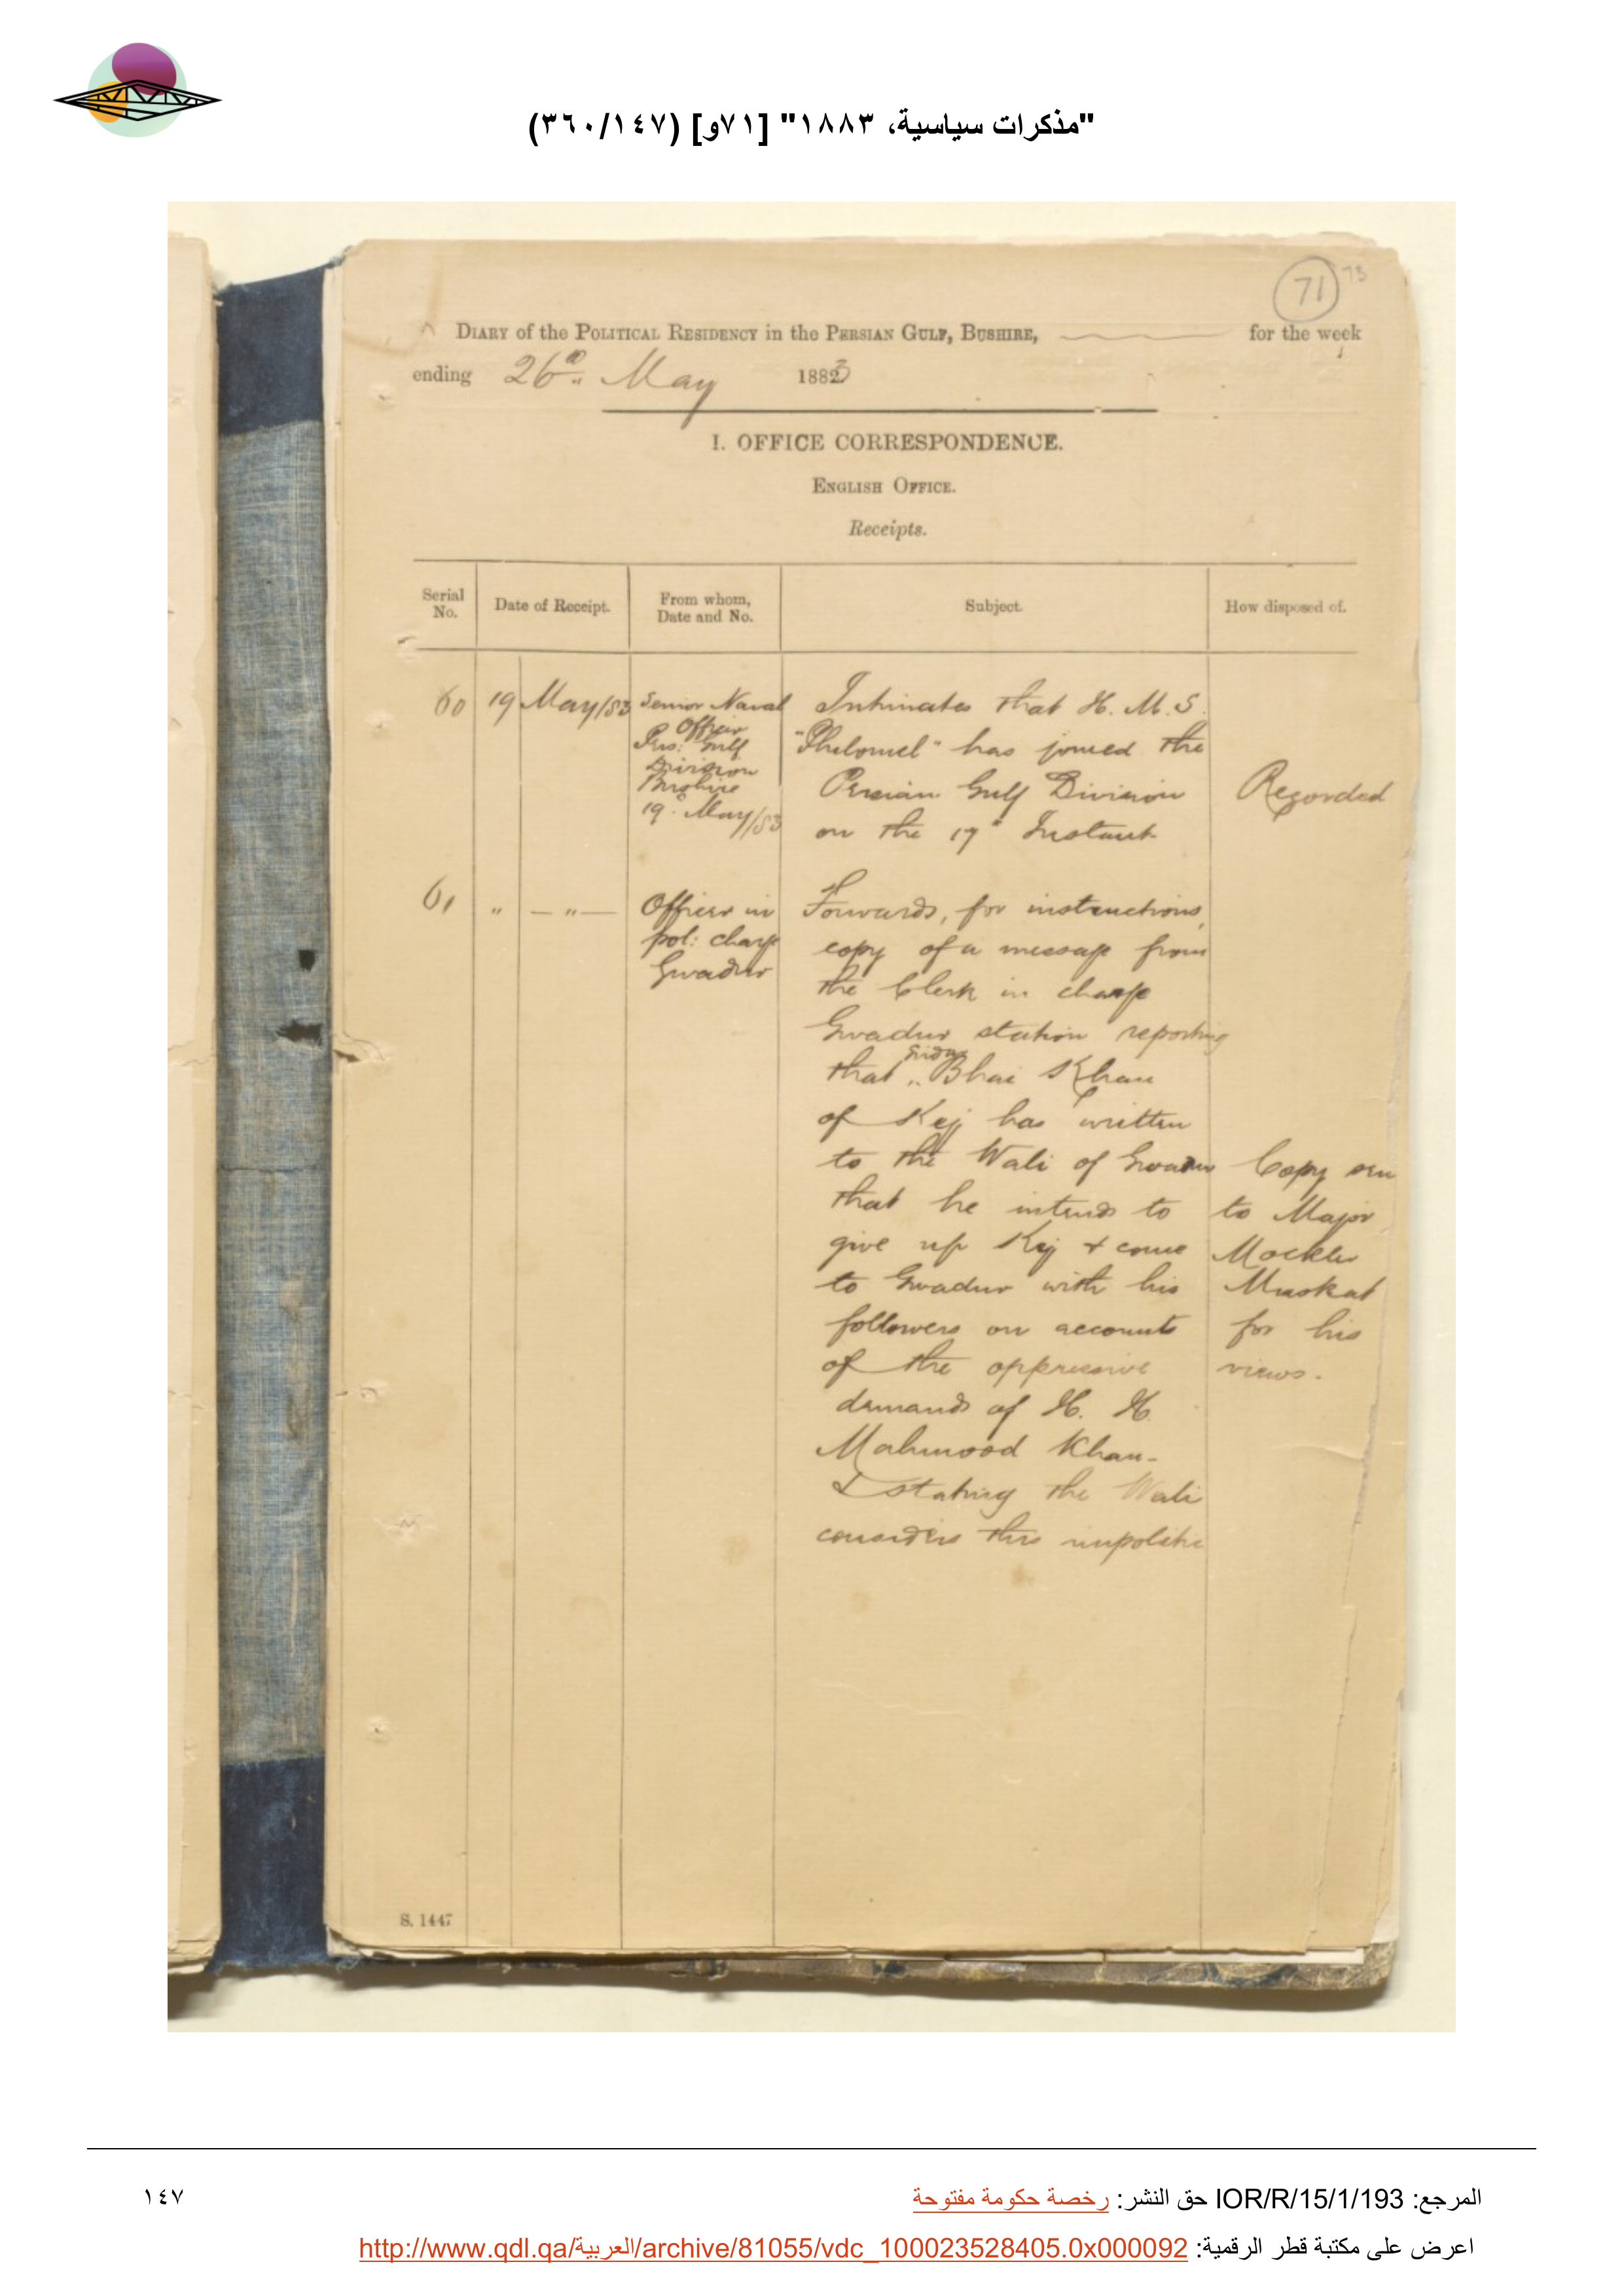 "مذكرات سياسية، ١٨٨٣" [٧١و] (٣٦٠/١٤٧)
71 73
DIARY of the POLITICAL RESIDENCY in the PERSIAN GULF, BUSHIRE, for the week
ending 26th May 1883
I. OFFICE CORRESPONDENCE.
ENGLISH OFFICE.
Receipts.
Serial No.
Date of Receipt.
From whom, Date and No.
Subject.
How disposed of.
60
19 May/83
Senior Naval
Officer
Pers: Gulf
Division
Bushire
19th May/83
Intimates that H. M. S.
"Philomel" has joined the
Persian Gulf Division
on the 17th Instant
Recorded
61
" — " —
Officer in
pol: charge
Gwadur
Forwards, for instructions,
copy of a message from
the Clerk in charge
Gwadur station reporting
that Bhai Khan
of Kej has written
to the Wali of Gwadur
that he intends to
give up Kej & come
to Gwadur with his
followers on accounts
of the oppressive
demands of H. H.
Mahmood Khan-
& stating the Wali
considers this impolitic
Copy sen
to Major
Mockler
Muskat
for his
views.
S. 1447
المرجع: IOR/R/15/1/193 حق النشر: رخصة حكومة مفتوحة
١٤٧
اعرض على مكتبة قطر الرقمية: http://www.qdl.qa/العربية/archive/81055/vdc_100023528405.0x000092